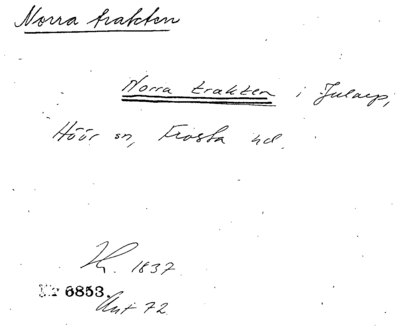 Norra trakten
Norra trakten i Jularp,
Höör sn, Frosta hd.
1837
Nr 6853.
Ant 72